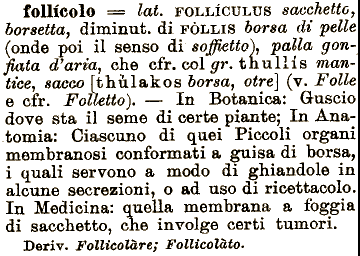 follícolo = lat. FOLLÍCULUS sacchetto,
borsetta, diminut. di FÒLLIS borsa di pelle
(onde poi il senso di soffietto), palla gon-
fiata d'aria, che cfr. col gr. thullis man-
tice, sacco [thùlakos borsa, otre] (v. Folle
e cfr. Folletto). — In Botanica: Guscio
dove sta il seme di certe piante; In Ana-
tomia: Ciascuno di quei Piccoli organi
membranosi conformati a guisa di borsa,
i quali servono a modo di ghiandole in
alcune secrezioni, o ad uso di ricettacolo.
In Medicina: quella membrana a foggia
di sacchetto, che involge certi tumori.
Deriv. Follicolàre; Follicolàto.